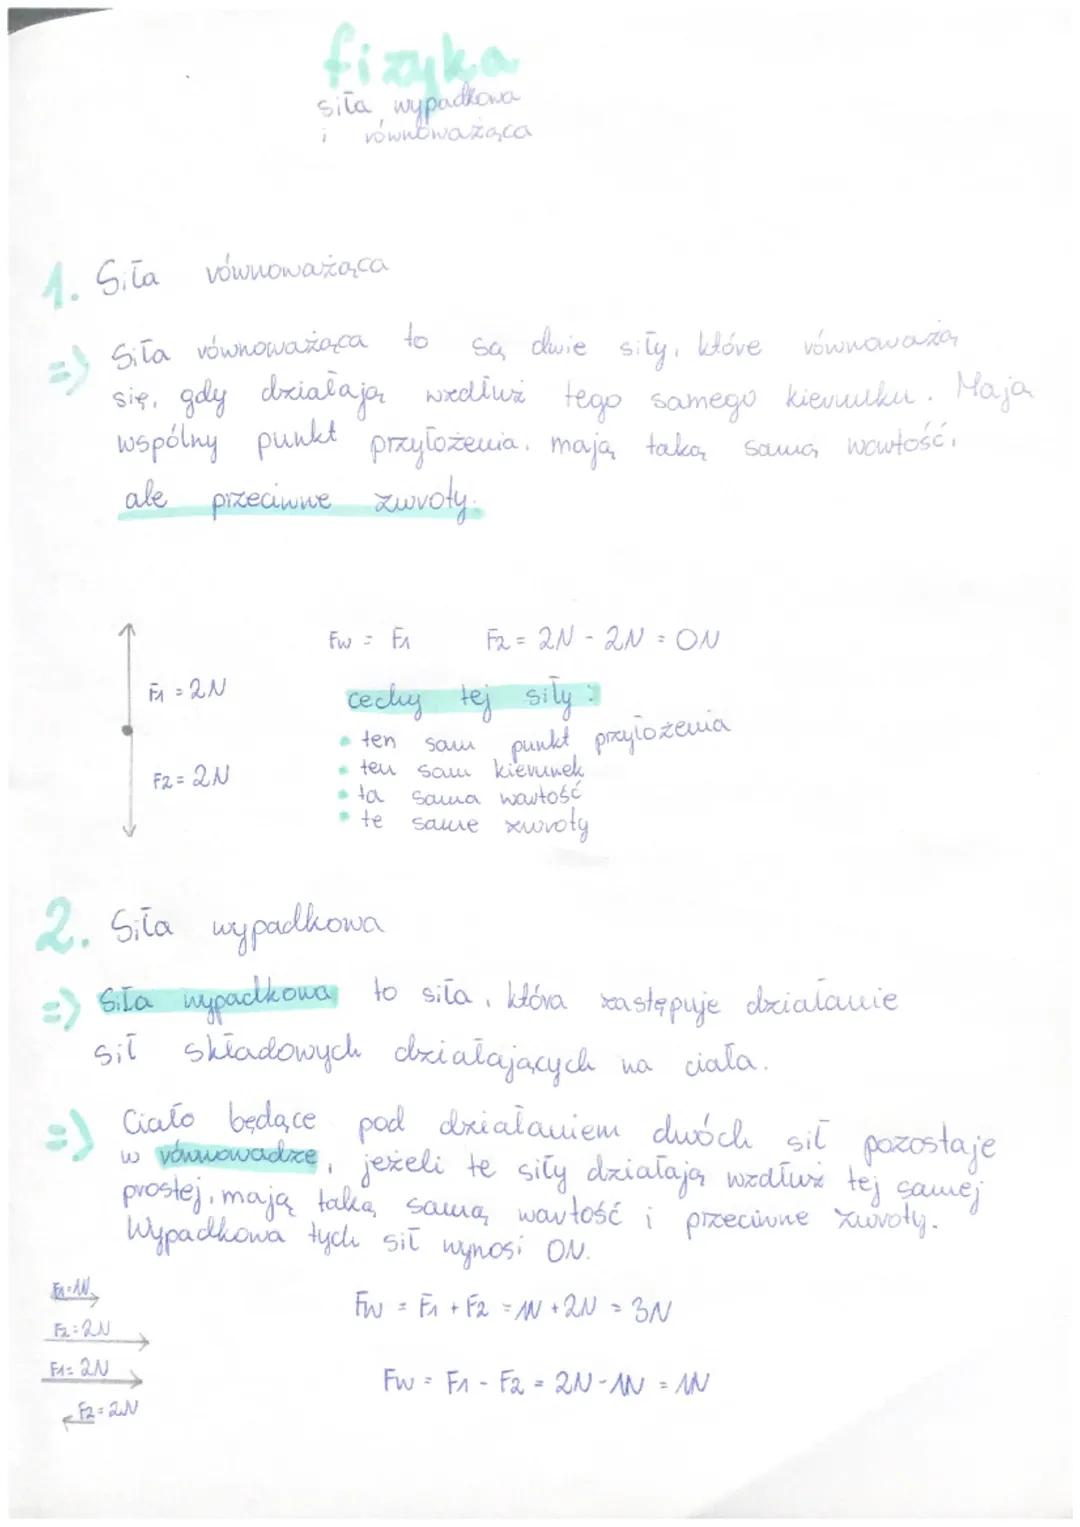 fizyka
siła wypadkowa
i równoważąca
1. Siła równoważąca
=> Siła równoważąca to są dwie siły, które równoważą
się, gdy działają wzdłuż tego samego kierunku. Mają
wspólny punkt przyłożenia, mają taką samą wartość,
ale przeciwne zwroty.
Fw = F1 F2 = 2N - 2N = 0N
F1 = 2N
cechy tej siły:
• ten sam punkt przyłożenia
F2 = 2N
• ten sam kierunek
• ta sama wartość
• te same zwroty
2. Siła wypadkowa
=> Siła wypadkowa to siła, która zastępuje działanie
sił składowych działających na ciała.
=> Ciało będące pod działaniem dwóch sił pozostaje
w równowadze, jeżeli te siły działają wzdłuż tej samej
prostej, mają taką samą wartość i przeciwne zwroty.
Wypadkowa tych sił wynosi 0N.
F1=1N
F2=2N
Fw = F1 + F2 = 1N + 2N = 3N
F1=2N
F2=2N
Fw = F1 - F2 = 2N - 1N = 1N